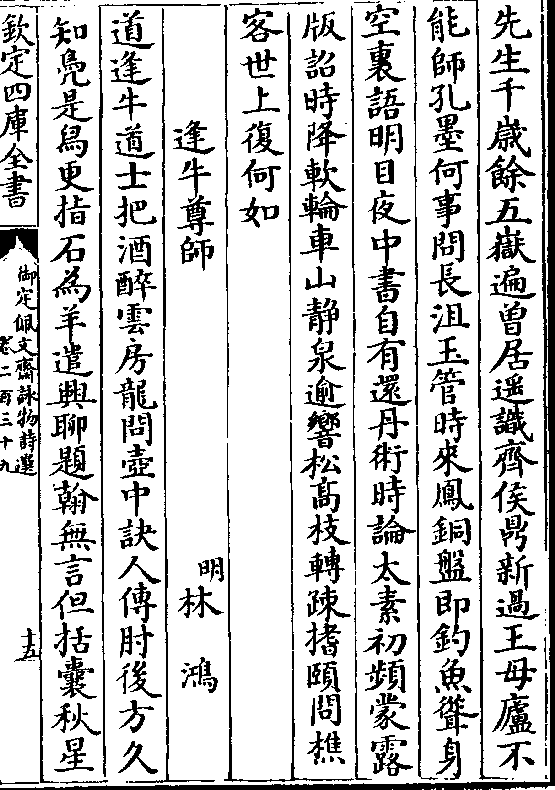 先生千嵗餘五嶽遍曾居遥識齊侯鼎新過王母廬不
能師孔墨何事問長沮玉管時來鳳銅盤即釣魚聳身
空裏語明目夜中書自有還丹術時論太素初頻蒙露
版詔時降軟輪車山静泉逾響松高枝轉疎揩頤問樵
客世上復何如
逢牛尊師
明林鴻
道逢牛道士把酒醉雲房龍問壺中訣人傳肘後方久
知鳧是舄更指石為羊遣興聊題翰無言但括囊秋星
欽定四庫全書
御定佩文齋詠物詩選
卷二百三十九
十五